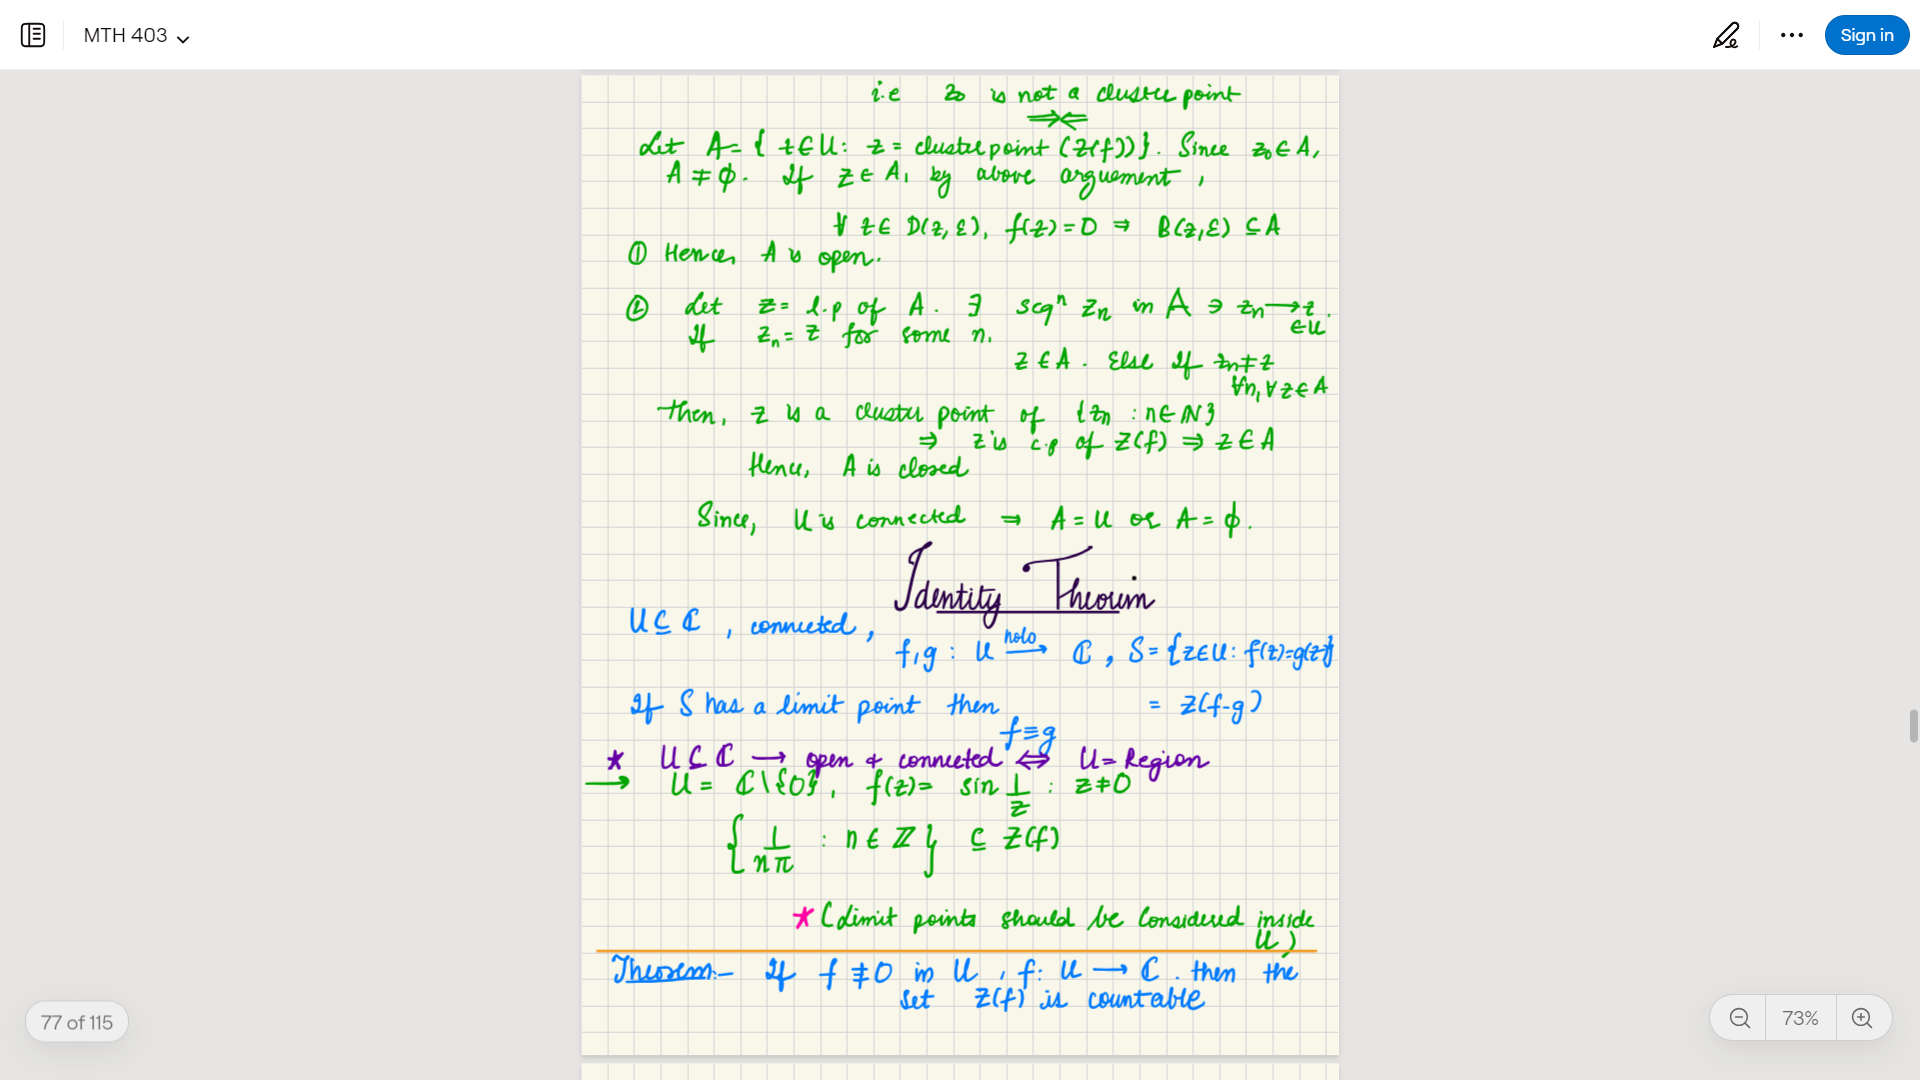 MTH 403
Sign in
i.e z₀ is not a cluster point
⇒⇐
Let A = { z ∈ U : z = cluster point (Z(f)) }. Since z₀ ∈ A,
A ≠ ϕ. If z ∈ A, by above arguement,
∀ z ∈ D(z, ε), f(z) = 0 ⇒ B(z, ε) ⊆ A
① Hence, A is open.
② Let z = l.p of A. ∃ seqⁿ zₙ in A ∋ zₙ → z.
∈ U
If zₙ = z for some n,
z ∈ A. Else If zₙ ≠ z
∀n, ∀ z ∈ A
Then, z is a cluster point of {zₙ : n ∈ ℕ}
⇒ z is c.p of Z(f) ⇒ z ∈ A
Hence, A is closed
Since, U is connected ⇒ A = U or A = ϕ.
Identity Theorem
U ⊆ ℂ, connected,
f, g : U holo→ ℂ, S = {z ∈ U : f(z) = g(z)}
If S has a limit point then = Z(f-g)
f ≡ g
* U ⊆ ℂ → open & connected ⇔ U = Region
→ U = ℂ\{0}, f(z) = sin 1/z : z ≠ 0
{ 1/nπ : n ∈ ℤ } ⊆ Z(f)
* (Limit points should be considered inside
U)
Theorem:- If f ≢ 0 in U, f : U → ℂ. then the
set Z(f) is countable
77 of 115
73%